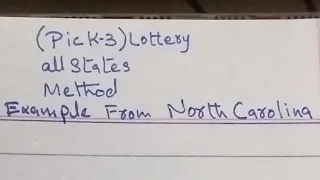 (Pick-3) Lottery
all States
Method
Example From North Carolina